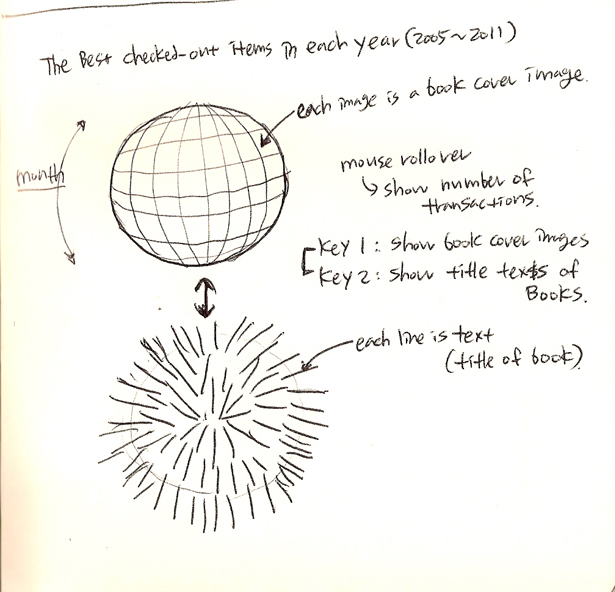 The Best checked-out items in each year (2005~2011)
each image is a book cover image.
month
mouse rollover
show number of
transactions.
Key 1 : show book cover images
Key 2 : show title texts of
Books.
each line is text
(title of book)